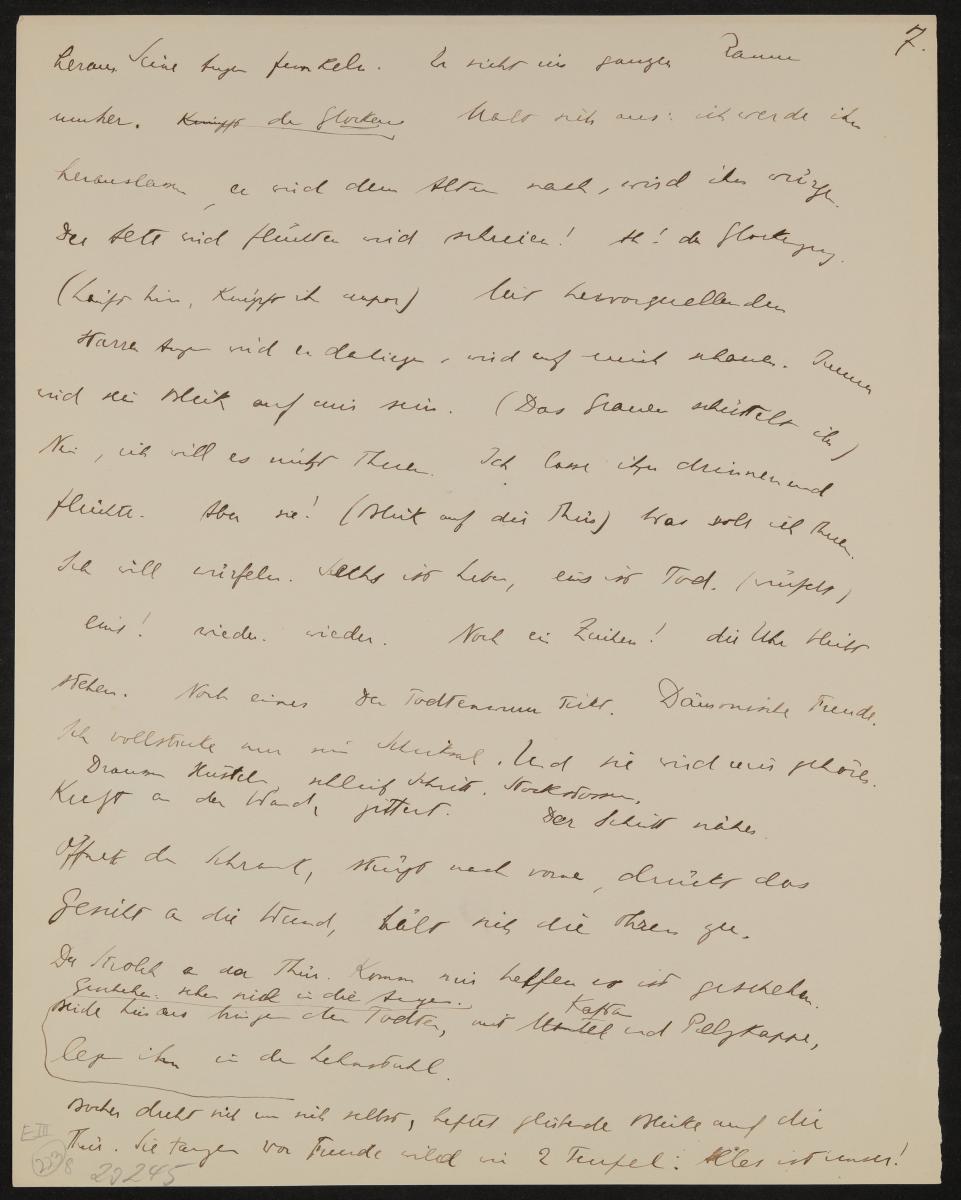 7.
heraus. Seine Augen funkeln. Er sieht im ganzen Raum
umher. Knüpft den Glocken Malt sich aus: ich werde ihn
herauslassen, er wird dem Alten nach, wird ihn würgen.
Der Alte wird flüchten wird schreien! Ah! der Glockenzug.
(Läuft hin, knüpft ihn empor) Mit hervorquellenden
starren Augen wird er daliegen, wird auf mich schauen. Immer
wird sein Blick auf mir sein. (Das Grauen schüttelt ihn)
Nein, ich will es nicht thuen. Ich lasse ihn drinnen und
flüchte. Aber sie! (Blick auf die Thür) Was soll ich thuen.
Ich will würfeln. Sechs ist Leben, eins ist Tod. (würfelt)
eins! wieder. wieder. Noch ein Zeichen! die Uhr bleibt
stehen. Noch eines Der Todtenwurm tickt. Dämonische Freude.
Ich vollstrecke nur sein Schicksal. Und sie wird mir gehören.
Draussen Hüsteln schleif Schritt. Stockstossen.
an der Wand, zittert. Der Schritt näher.
Öffnet den Schrank, stürzt nach vorne, drückt das
Gesicht an die Wand, hält sich die Ohren zu.
Der Strolch an der Thür. Komm mir helfen es ist geschehen.
sehen sich in die Augen.
Beide hinaus bringen den Todten, mit Mantel Kaftan und Pelzkappe,
legen ihn in den Lehnstuhl.
dreht sich um sich selbst, heftet glühende Blicke auf die
Thür. Sie tanzen vor Freude wild wie 2 Teufel: Alles ist unser!
E III
23245